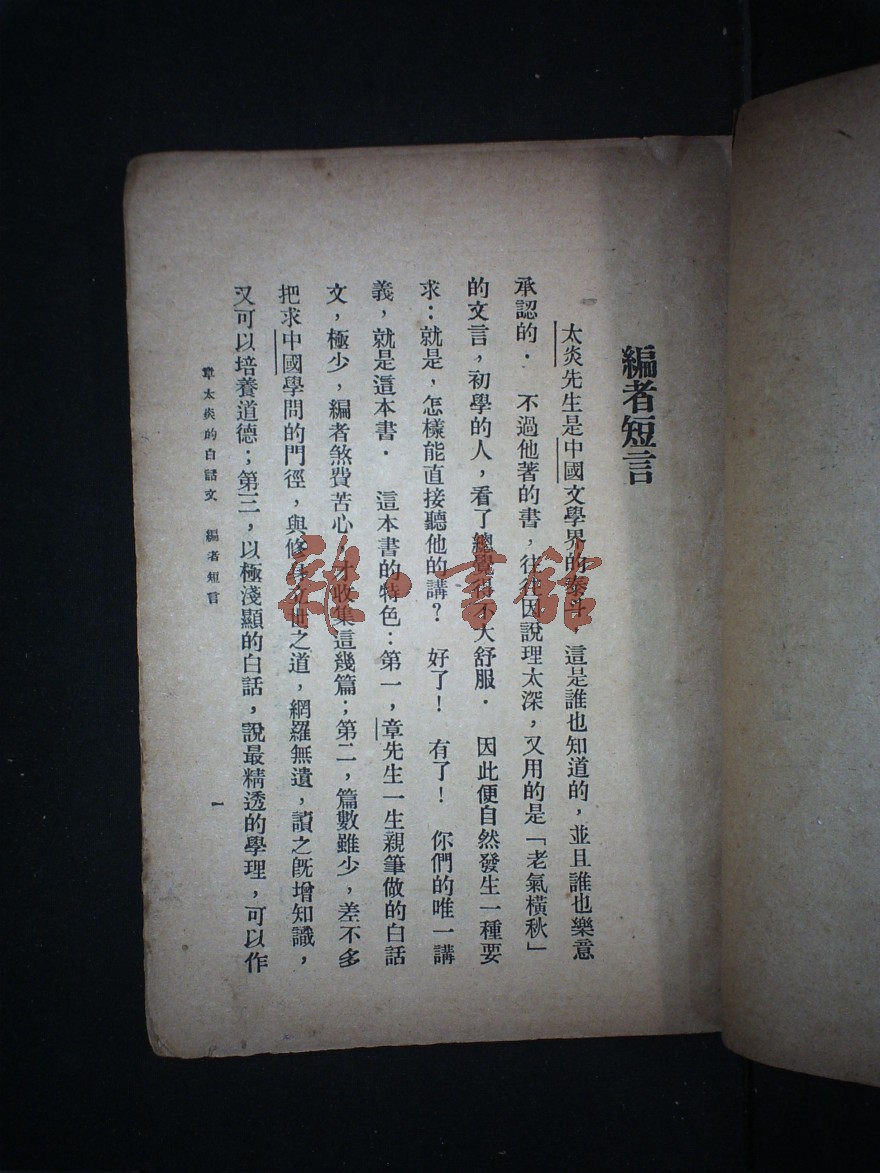 編者短言
太炎先生是中國文學界的泰斗，這是誰也知道的，並且誰也樂意
承認的． 不過他著的書，往往因說理太深，又用的是「老氣橫秋」
的文言，初學的人，看了總覺得不大舒服． 因此便自然發生一種要
求：就是，怎樣能直接聽他的講？ 好了！ 有了！ 你們的唯一講
義，就是這本書． 這本書的特色：第一，章先生一生親筆做的白話
文，極少，編者煞費苦心，才收集這幾篇；第二，篇數雖少，差不多
把求中國學問的門徑，與修身立世之道，網羅無遺，讀之既增知識，
又可以培養道德；第三，以極淺顯的白話，說最精透的學理，可以作
章太炎的白話文 編者短言
一
雜·書館